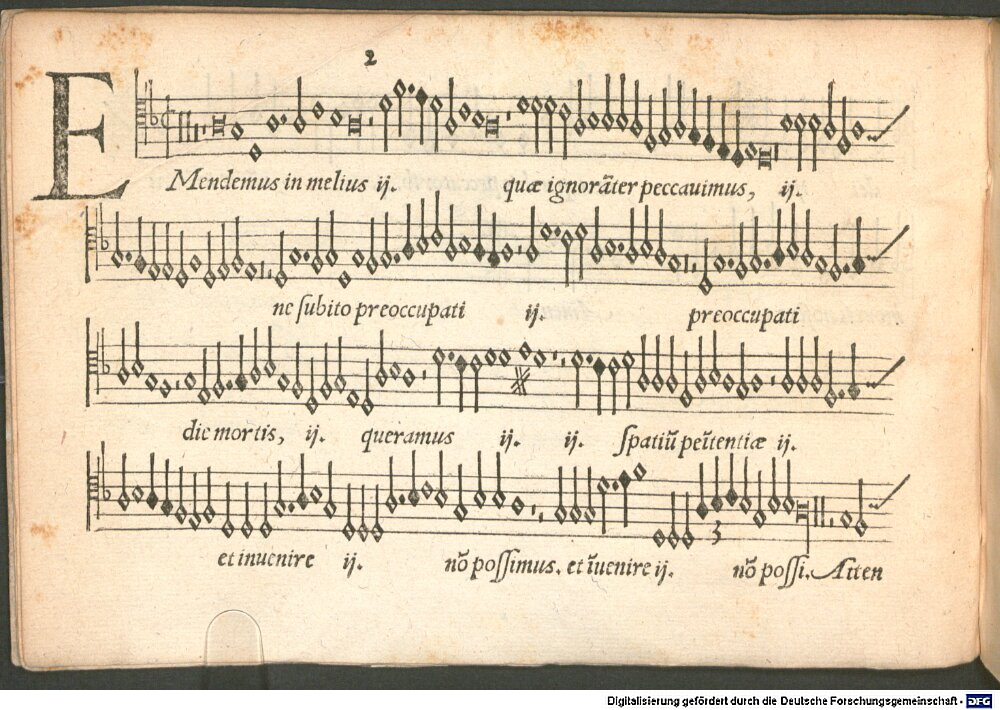 2
EMendemus in melius ij. quæ ignorãter peccauimus, ij.
ne subito preoccupati ij. preoccupati
die mortis, ij. queramus ij. ij. spatiũ peñtentiæ ij.
et inuenire ij. nõ possimus. et ĩuenire ij. nõ possi. Atten
3
Digitalisierung gefördert durch die Deutsche Forschungsgemeinschaft - DFG